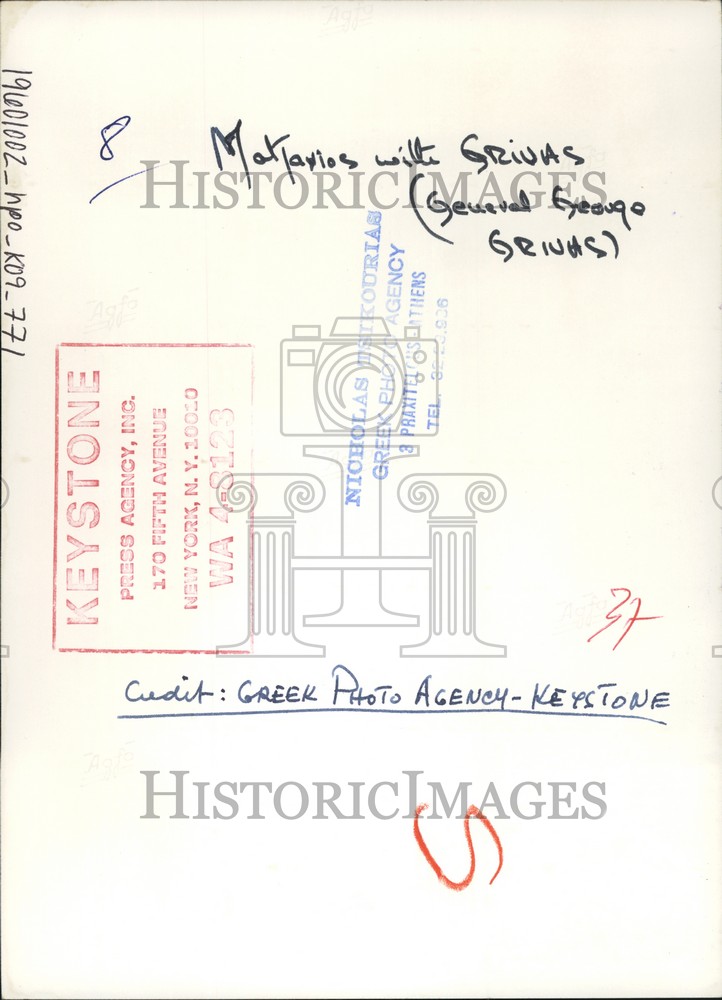 19601002_hpo_K09_771
8
Makarios with GRIVAS
(General George
GRIVAS)
NICHOLAS TSIKOURIAS
GREEK PHOTO AGENCY
3 PRAXITELOUS ATHENS
TEL.
KEYSTONE
PRESS AGENCY, INC.
170 FIFTH AVENUE
NEW YORK, N. Y. 10010
WA 4-8123
37
Credit: GREEK PHOTO AGENCY-KEYSTONE
S
HISTORICIMAGES
HISTORICIMAGES
Agfa
Agfa
Agfa
Agfa